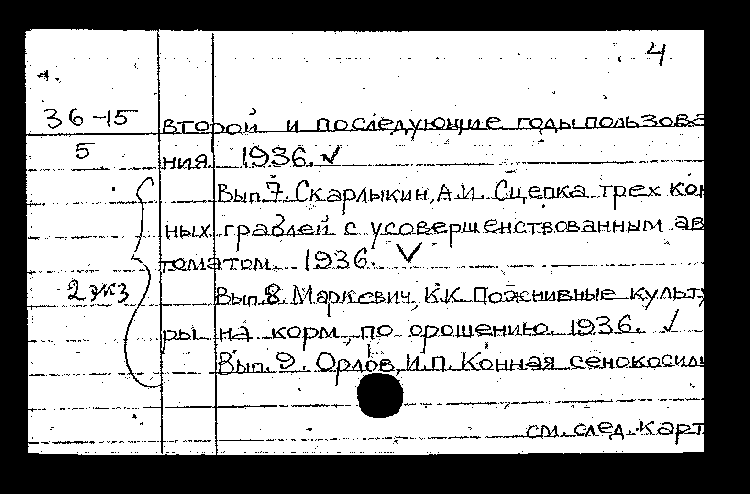 4
36-15 второй и последующие годы пользова
5 ния 1936. ✓
Вып. 7. Скарлыкин, А.И. Сцепка трех кон
ных граблей с усовершенствованным ав
томатом. 1936. ✓
2 экз Вып. 8. Маркевич, К.К. Пожнивные культу
ры на корм, по орошению. 1936. ✓
Вып. 9. Орлов, И.П. Конная сенокосил
см. след. карт